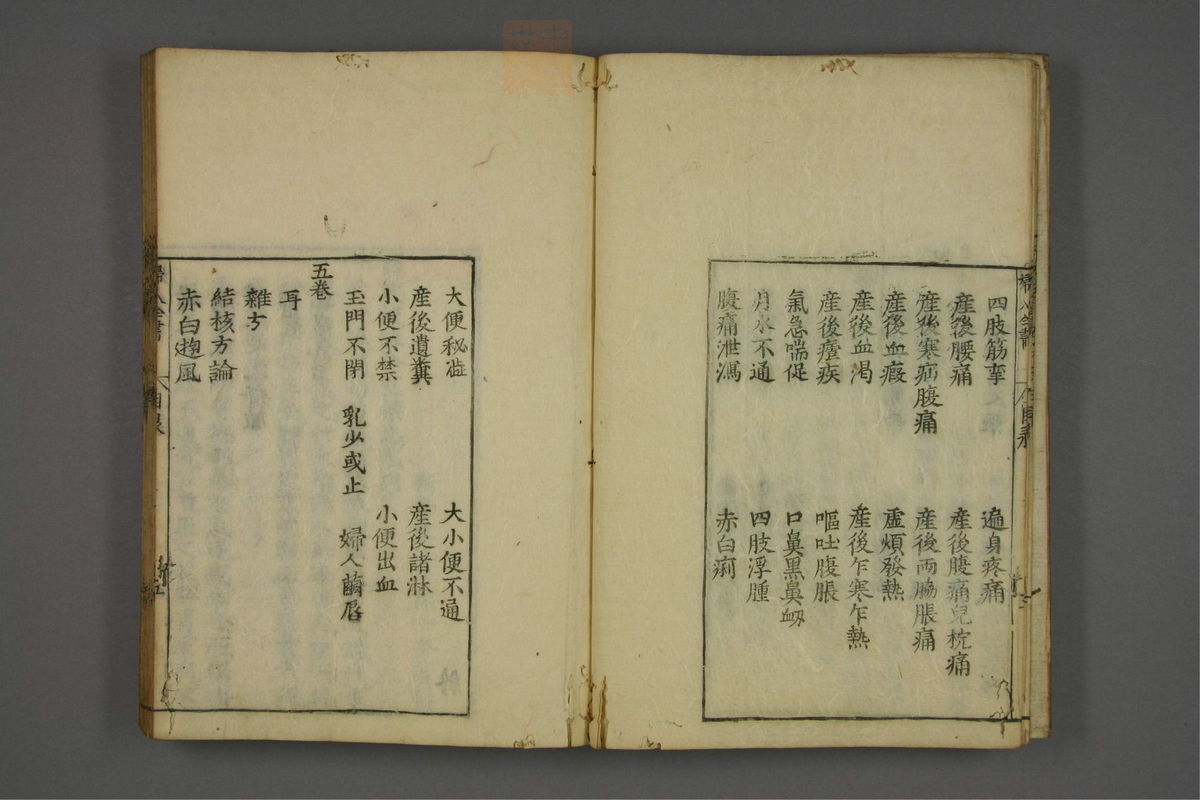 四肢筋挛 遍身疼痛
産後腰痛 産後腹痛兒枕痛
産後寒疝腹痛 産後両脇脹痛
産後血瘕 虛煩發熱
産後血渴 産後乍寒乍熱
産後瘧疾 嘔吐腹脹
氣急喘促 口鼻黒鼻衂
月水不通 四肢浮腫
腹痛泄瀉 赤白痢
大便秘澁 大小便不通
産後遺糞 産後諸淋
小便不禁 小便出血
玉門不閉 乳少或止 婦人繭唇
五卷
耳
雜方
結核方論
赤白遊風